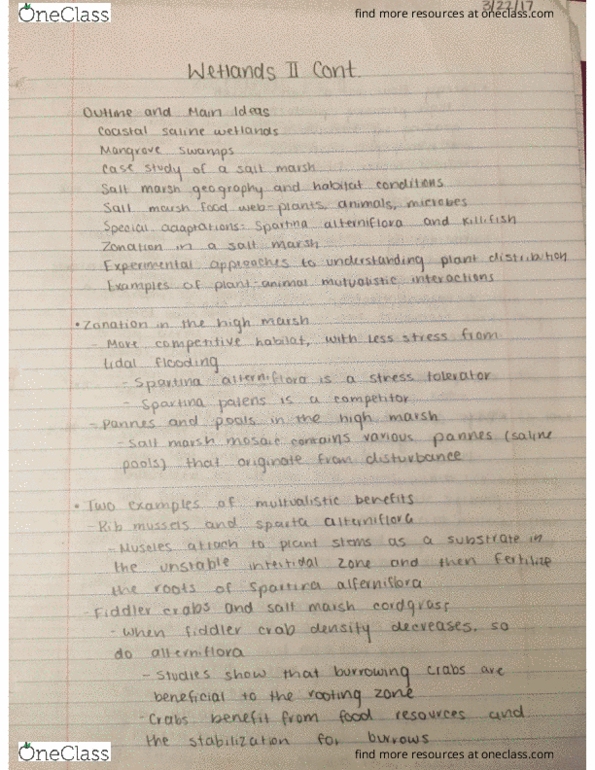 OneClass
find more resources at oneclass.com
3/22/17
Wetlands II Cont.
Outline and Main Ideas
Coastal saline wetlands
Mangrove swamps
Case study of a salt marsh
Salt marsh geography and habitat conditions
Salt marsh food web-plants, animals, microbes
Special adaptations: Spartina alterniflora and Killifish
Zonation in a salt marsh
Experimental approaches to understanding plant distribution
Examples of plant-animal mutualistic interactions
• Zonation in the high marsh
- More competitive habitat, with less stress from
tidal flooding
- Spartina alterniflora is a stress tolerator
- Spartina patens is a competitor
- Pannes and pools in the high marsh
- Salt marsh mosaic contains various pannes (saline
pools) that originate from disturbance
• Two examples of multualistic benefits
- Rib mussels and sparta alterniflora
- Muscles attach to plant stems as a substrate in
the unstable intertidal zone and then fertilize
the roots of Spartina alterniflora
- Fiddler crabs and salt marsh cordgrass
- When fiddler crab density decreases, so
do alterniflora
- Studies show that burrowing crabs are
beneficial to the rooting zone
- Crabs benefit from food resources and
the stabilization for burrows
OneClass
find more resources at oneclass.com